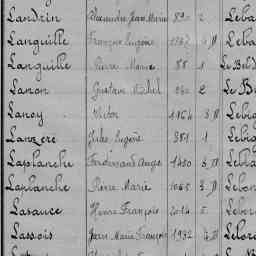 Landrin Alexandre Jean Marie 890 2 Leba
Languille François Eugène 1767 4 D Leba
Languille Pierre Marie 88 1 Le Bid
Lanon Gustave Michel 840 2 Le B
Lanoy Victor 1164 3 D Lebi
Lanzere Jules Eugène 381 1 Lebi
Laplanche Ferdinand Auge 1480 3 D Lebla
Laplanche Pierre Marie 1065 3 D Lebon
Lasance Henri François 2014 5 Lebor
Lassois Jean Marie François 1932 4 D Lebor